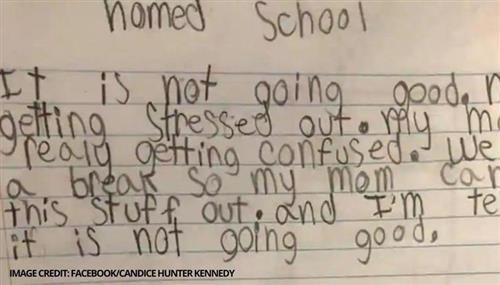 homed School
It is not going good.
getting Stressed out. My
realy getting confused. We
a break so my mom
this stuff out. and I'm
it is not going good.
IMAGE CREDIT: FACEBOOK/CANDICE HUNTER KENNEDY